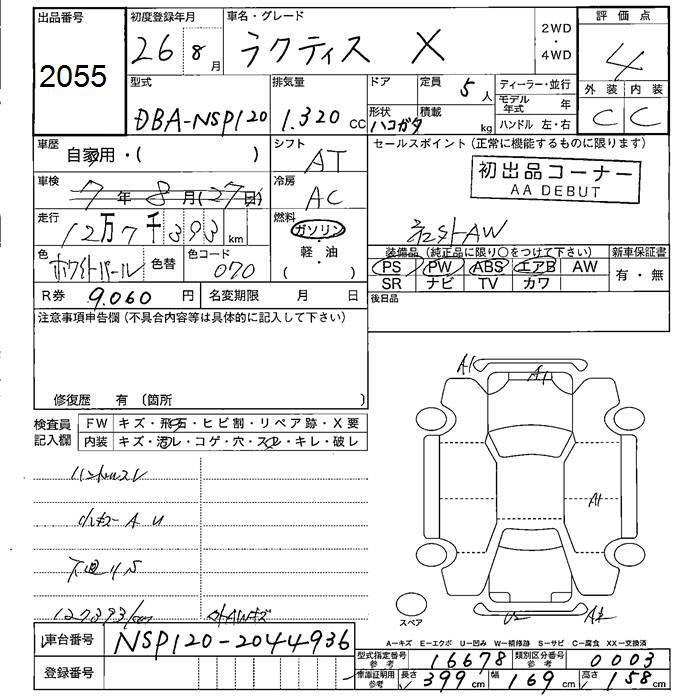 出品番号 2055
初度登録年月 26年8月
車名・グレード ラクティス X
2WD・4WD
評価点 4
外装 C 内装 C
型式 DBA-NSP120
排気量 1.320 CC
ドア
形状 ハコガタ
定員 5人
積載 kg
ディーラー・並行
モデル年式 年
ハンドル 左・右
車歴 自家用・( )
シフト AT
セールスポイント(正常に機能するものに限ります)
初出品コーナー
AA DEBUT
社外AW
車検 7年8月(27日)
冷房 AC
走行 12万7千393km
燃料 ガソリン
軽・油
( ・ )
色 ホワイトパール 色替
色コード 070
装備品(純正品に限り○をつけて下さい)
PS PW ABS エアB AW
SR ナビ TV カワ
新車保証書
有・無
R券 9.060円
名変期限 月 日
後日品
注意事項申告欄(不具合内容等は具体的に記入して下さい)
修復歴 有(箇所 )
検査員記入欄
FW キズ・飛石・ヒビ割・リペア跡・X要
内装 キズ・汚レ・コゲ・穴・スレ・キレ・破レ
ハンドルスレ
A1
A1
A1
下廻りS
127393km 外AWキズ
U2
スペア
A-キズ E-エクボ U-凹み W-補修跡 S-サビ C-腐食 XX-交換済
車台番号 NSP120-2044936
登録番号
型式指定番号 参考 16678
類別区分番号 参考 0003
車庫証明用 参考 長さ 399cm 幅 169cm 高さ 158cm